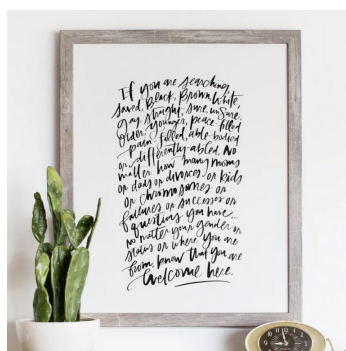 If you are searching,
saved, Black, Brown, White,
gay, straight, sure, unsure,
older, younger, peace-filled
pain-filled, able-bodied
or differently abled, No
matter how many moms
or dads or divorces or kids
or chromosomes or
failures or successes or
questions you have...
no matter your gender or
status or where you are
from, know that you are
welcome here.